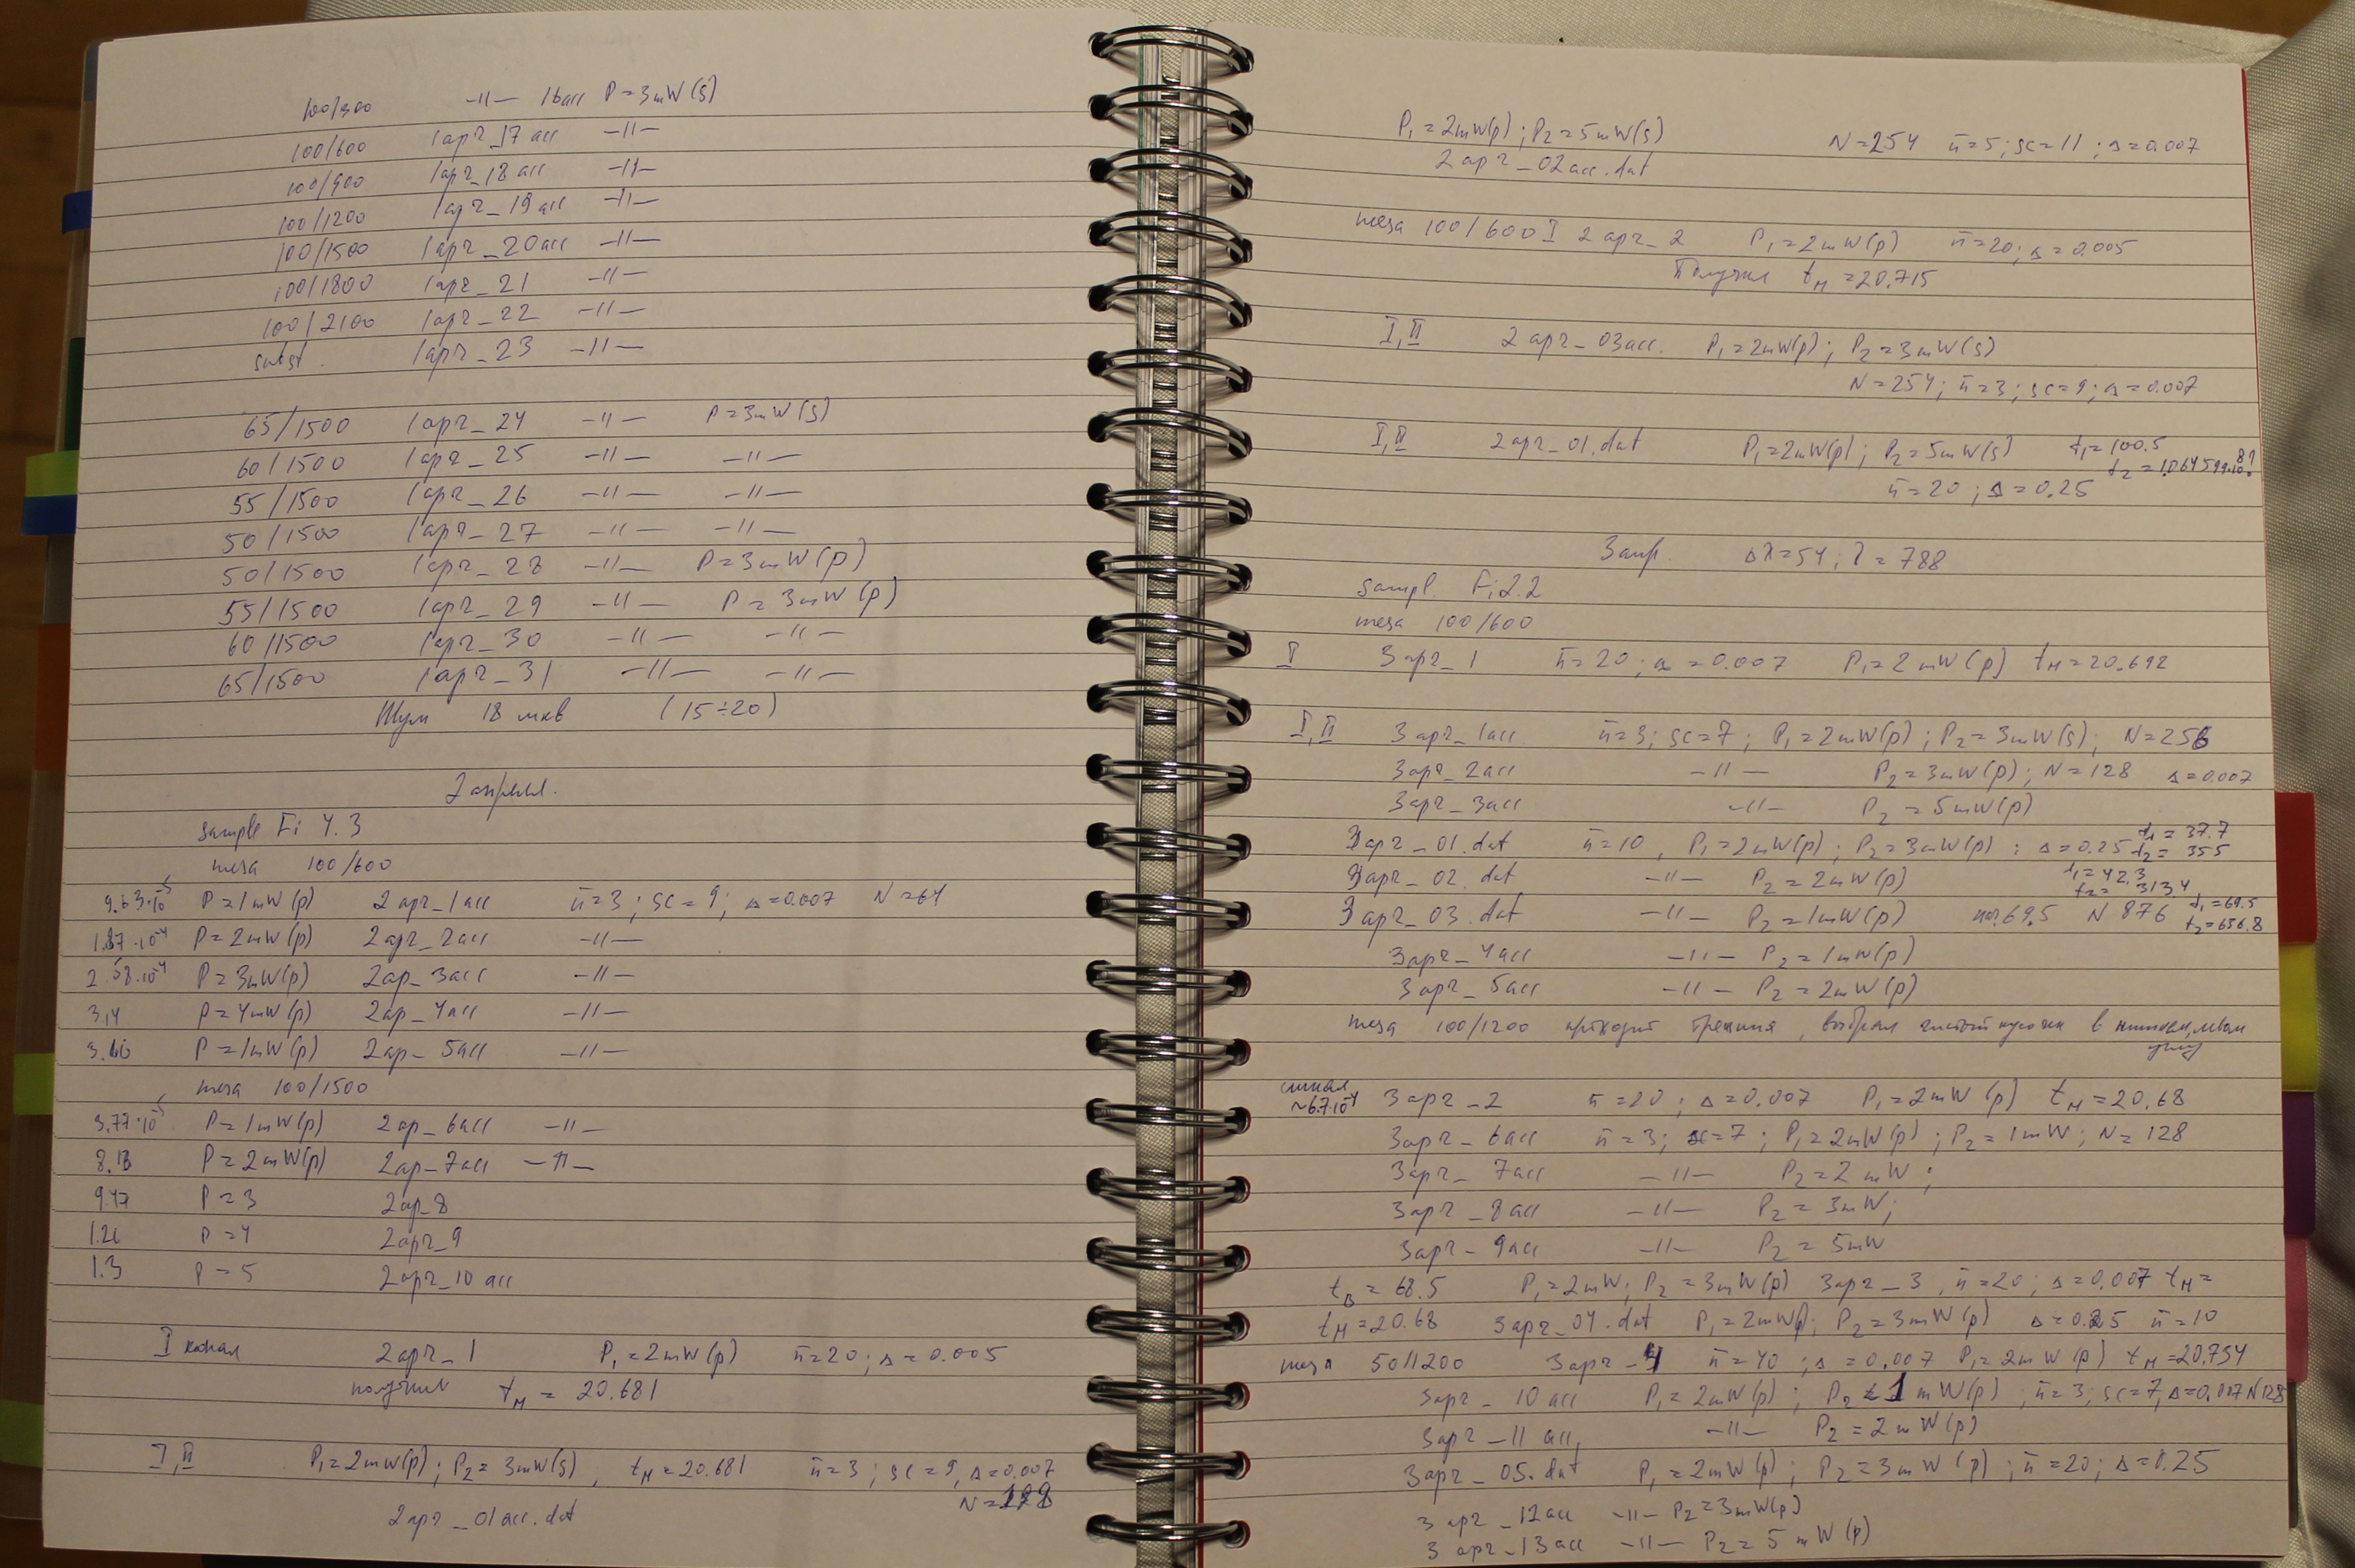 100/300 -11- 16acc P=3mW(s)
100/600 1apr_17acc -11-
100/900 1apr_18acc -11-
100/1200 1apr_19acc -11-
100/1500 1apr_20acc -11-
100/1800 1apr_21 -11-
100/2100 1apr_22 -11-
subst. 1apr_23 -11-
65/1500 1apr_24 -11- P=3mW(s)
60/1500 1apr_25 -11- -11-
55/1500 1apr_26 -11- -11-
50/1500 1apr_27 -11- -11-
50/1500 1apr_28 -11- P=3mW(p)
55/1500 1apr_29 -11- P=3mW(p)
60/1500 1apr_30 -11- -11-
65/1500 1apr_31 -11- -11-
Шум 18 мкв (15÷20)
2 апрел.
sample Fi 4.3
mesa 100/600
9.63·10⁻⁵ P=1mW(p) 2apr_1acc n̄=3; sc=9; Δ=0.007 N=64
1.87·10⁻⁴ P=2mW(p) 2apr_2acc -11-
2.58·10⁻⁴ P=3mW(p) 2ap_3acc -11-
3,4 P=4mW(p) 2ap_4acc -11-
P=1mW(p) 2ap_5acc -11-
mesa 100/1500
3.77·10⁻⁵ P=1mW(p) 2ap_6acc -11-
8.13 P=2mW(p) 2ap_7acc -11-
9.47 P=3 2ap_8
1.26 P=4 2apr_9
1.3 P=5 2apr_10 acc
I канал 2apr_1 P₁=2mW(p) n̄=20; Δ=0.005
получил t_M = 20.681
I,II P₁=2mW(p); P₂=3mW(s), t_M=20.681 n̄=3; sc=9, Δ=0.007
N=128
2apr_01acc.dat
P₁=2mW(p); P₂=5mW(s) N=254 n̄=5; sc=11; Δ=0.007
2apr_02acc.dat
mesa 100/600 I 2apr_2 P₁=2mW(p) n̄=20; Δ=0.005
Получил t_M=20.715
I,II 2apr_03acc. P₁=2mW(p); P₂=3mW(s)
N=254; n̄=3; sc=9; Δ=0.007
I,II 2apr_01.dat P₁=2mW(p); P₂=5mW(s) t₁=100.5
t₂=
n̄=20; Δ=0.25
3 апр. Δλ=54; λ=788
sampl. Fi2.2
mesa 100/600
I 3apr_1 n̄=20; Δ=0.007 P₁=2mW(p) t_M=20.692
I,II 3apr_1acc n̄=3; sc=7; P₁=2mW(p); P₂=3mW(s); N=256
3apr_2acc -11- P₂=3mW(p); N=128 Δ=0.007
3apr_3acc -11- P₂=5mW(p)
3apr_01.dat n̄=10, P₁=2mW(p); P₂=3mW(p); Δ=0.25 t₁=37.7
t₂=355
3apr_02.dat -11- P₂=2mW(p) t₁=42.3
t₂=313.4
3apr_03.dat -11- P₂=1mW(p) 69.5 N 876 t₁=69.5
t₂=656.8
3apr_4acc -11- P₂=1mW(p)
3apr_5acc -11- P₂=2mW(p)
mesa 100/1200 проходит трещина, выбрал чистый кусочек в
углу
сигнал
~6.7·10⁻⁴ 3apr_2 n̄=20; Δ=0.007 P₁=2mW(p) t_M=20.68
3apr_6acc n̄=3; sc=7; P₁=2mW(p); P₂=1mW; N=128
3apr_7acc -11- P₂=2mW;
3apr_8acc -11- P₂=3mW;
3apr_9acc -11- P₂=5mW
t_B=68.5 P₁=2mW; P₂=3mW(p) 3apr_3, n̄=20; Δ=0.007 t_M=
t_M=20.68 3apr_04.dat P₁=2mWp; P₂=3mW(p) Δ=0.25 n̄=10
mesa 50/1200 3apr_4 n̄=40; Δ=0.007 P₁=2mW(p) t_M=20.754
3apr_10acc P₁=2mW(p); P₂=1mW(p); n̄=3; sc=7, Δ=0.007 N128
3apr_11acc, -11- P₂=2mW(p)
3apr_05.dat P₁=2mW(p); P₂=3mW(p); n̄=20; Δ=0.25
3apr_12acc -11- P₂=3mW(p)
3apr_13acc -11- P₂=5mW(p)